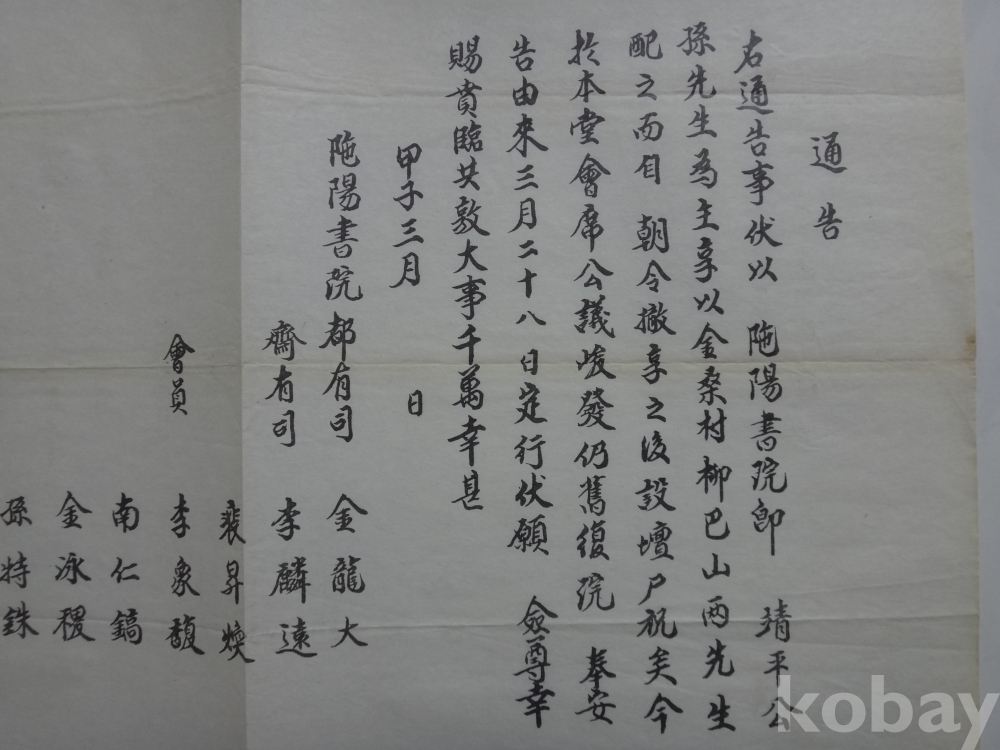 通告
右通告事伏以 陁陽書院卽 靖平公
孫先生爲主享以金桑村柳巴山两先生
配之而自 朝令撤享之後設壇尸祝矣今
於本堂會席公議峻發仍舊復院 奉安
告由來三月二十八日定行伏願 僉尊幸
賜賁臨共敦大事千萬幸甚
甲子三月 日
陁陽書院都有司 金龍大
齋有司 李麟遠
裴昇煥
會員 李象馥
南仁鎬
金泳稷
孫特銖
kobay